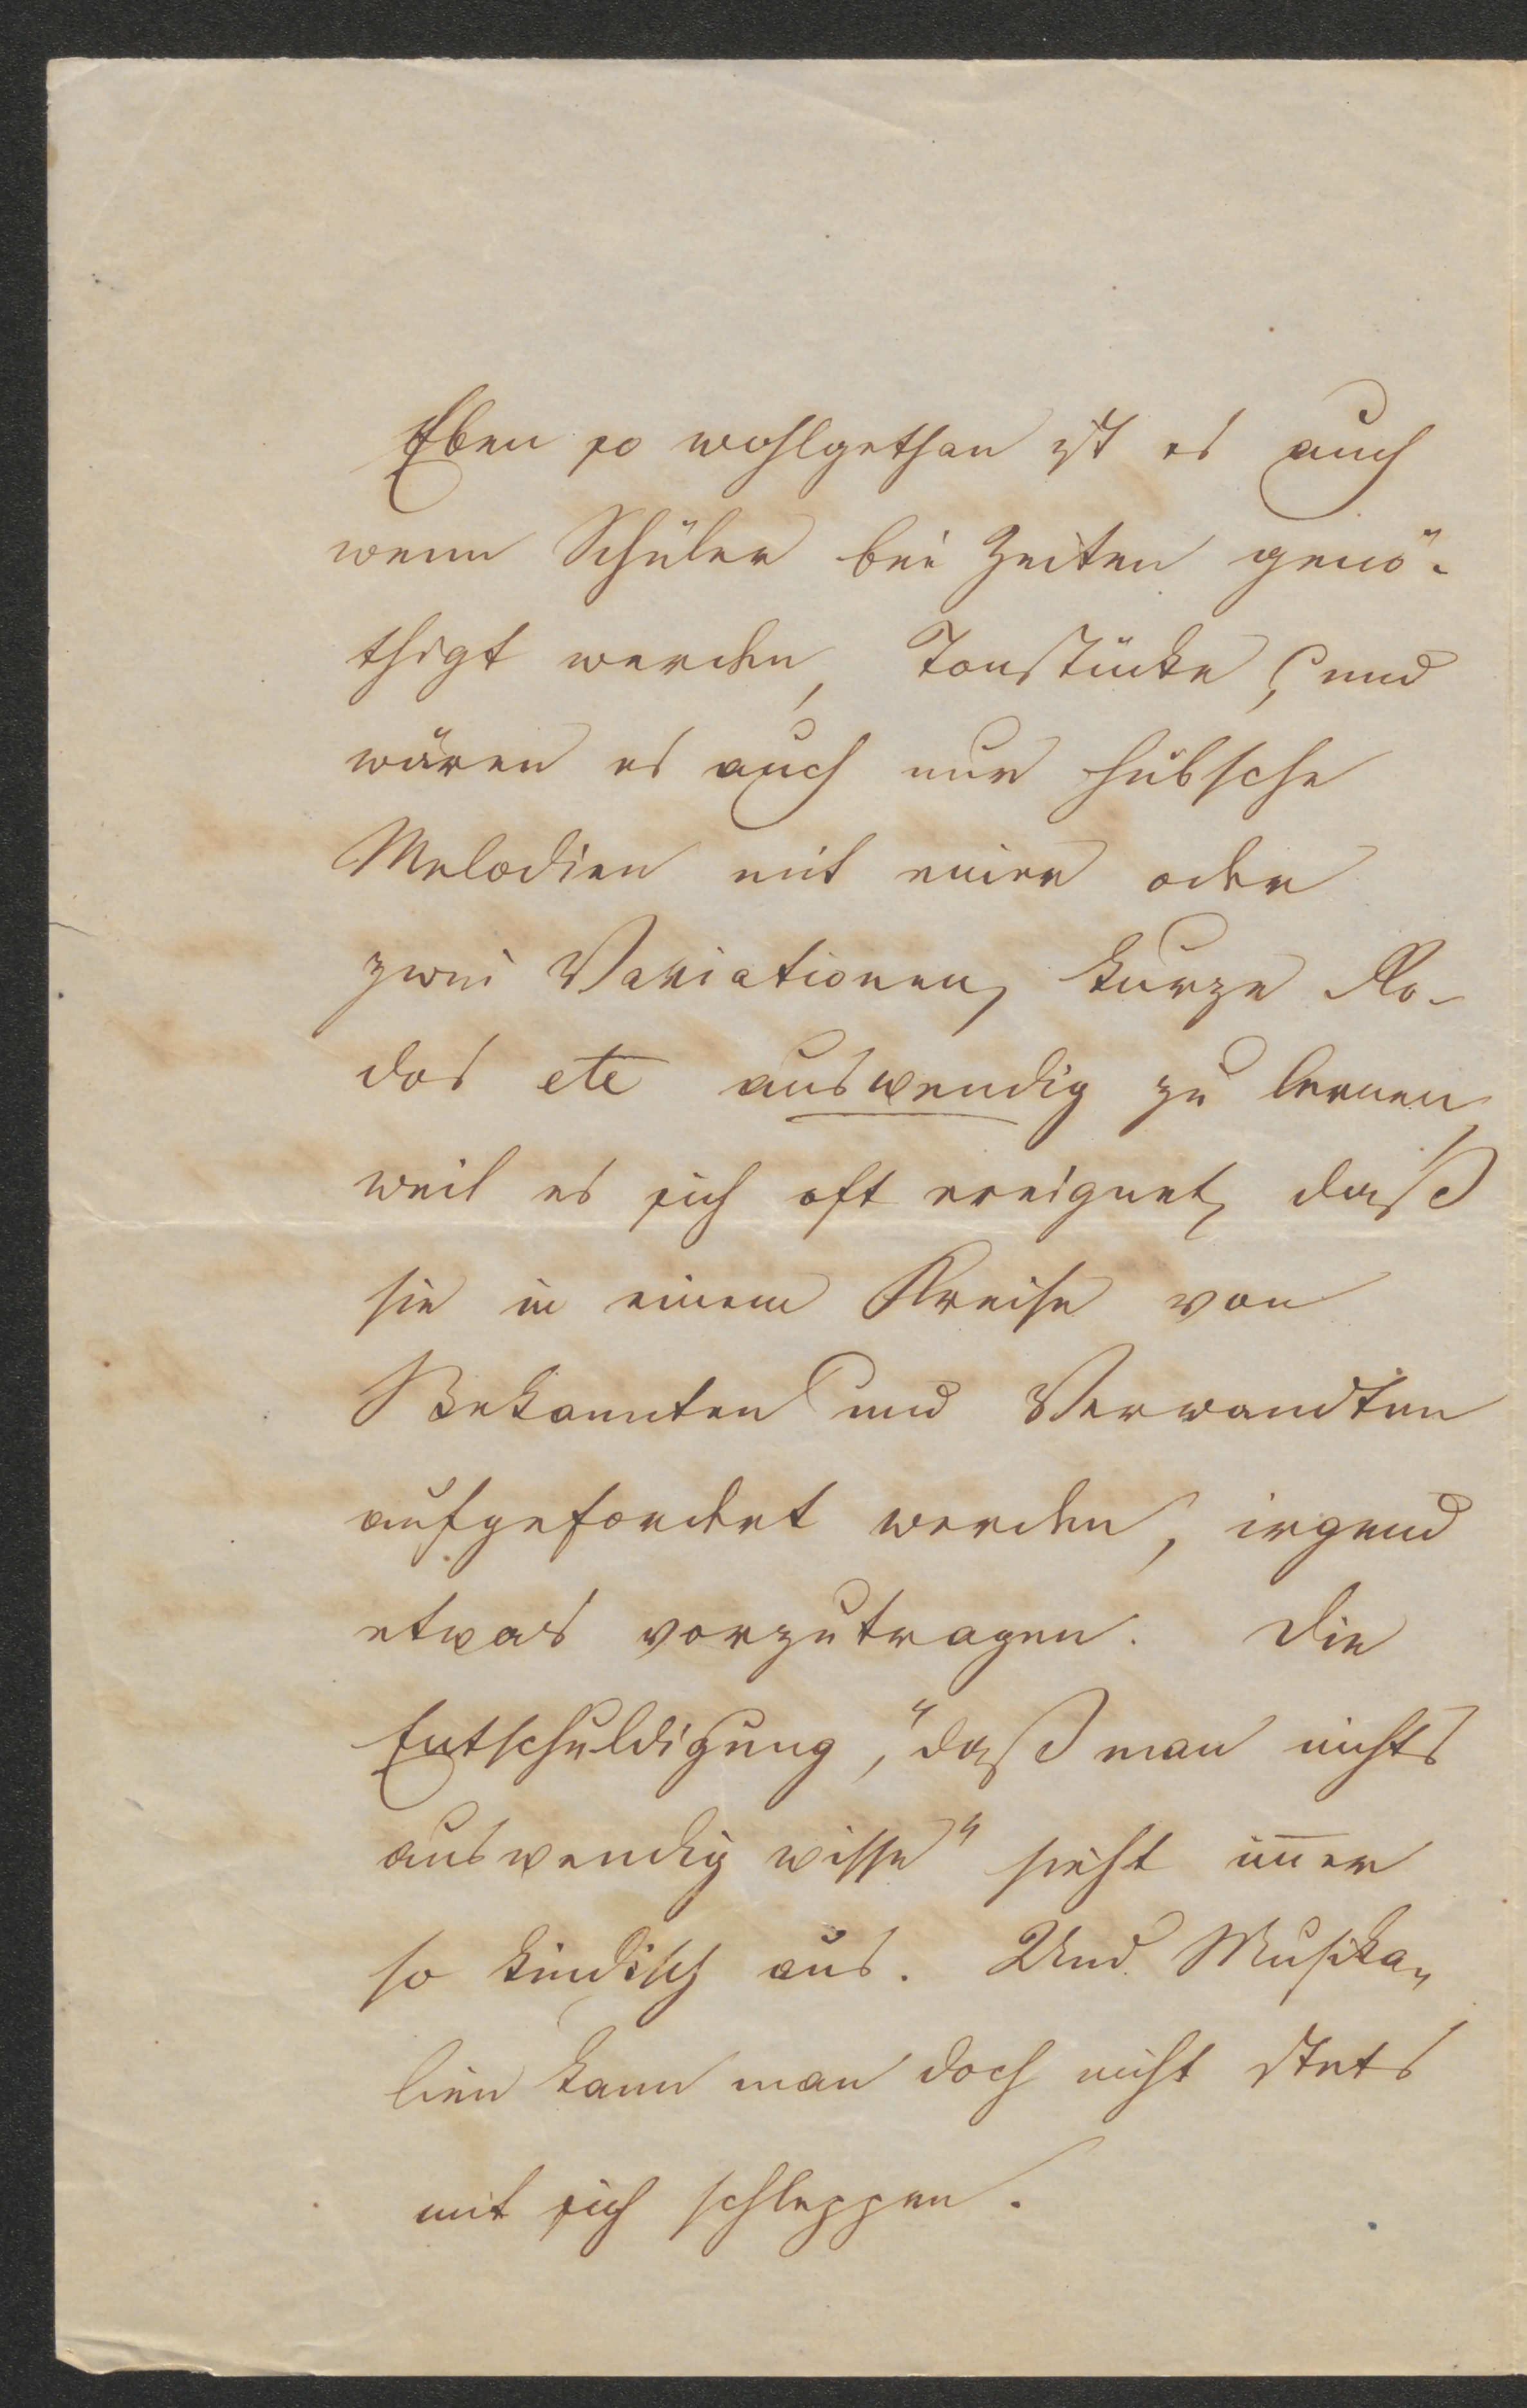 Eben so wohlgethan ist es auch
wenn Schüler bei Zeiten genö-
thigt werden, Tonstücke, (und
wären es auch nur hübsche
Melodien mit einer oder
zwei Variationen, kurze Ro-
dos etc auswendig zu lernen,
weil es sich oft ereignet, daß
sie in einem Kreise von
Bekannten und Verwandten
aufgefordert werden, irgend
etwas vorzutragen. Die
Entschuldigung, "daß man nichts
auswendig wisse" sieht im̄er
so kindisch aus. Und Musika-
lien kann man doch nicht stets
mit sich schleppen.